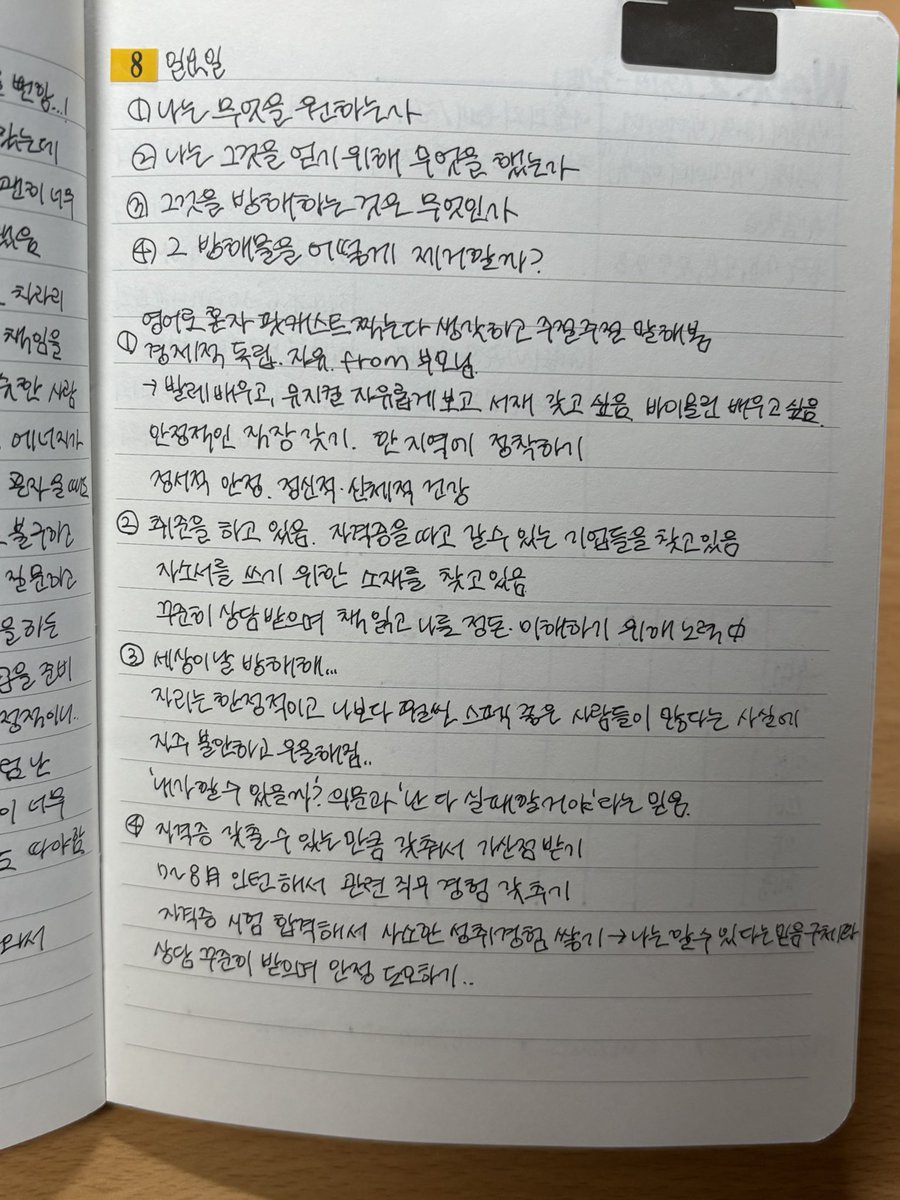 번항..!
았는데
괜히 너무
했음
차라리
책임을
슷한 사람
에너지가
혼자 을 때도
불구하고
질문하고
을 하는
금을 준비
정적이니..
럼 난
이 너무
도 따아함
와서
8 일요일
① 나는 무엇을 원하는가
② 나는 그것을 얻기 위해 무엇을 했는가
③ 그것을 방해하는 것은 무엇인가
④ 그 방해물을 어떻게 제거할까?
영어로 혼자 팟캐스트 찍는다 생각하고 주절주절 말해봄
① 경제적 독립. 자유. from 부모님.
→ 발레 배우고, 뮤지컬 자유롭게 보고 서재 갖고 싶음. 바이올린 배우고 싶음.
안정적인 직장 갖기. 한 지역에 정착하기
정서적 안정. 정신적·신체적 건강
② 취준을 하고 있음. 자격증을 따고 갈 수 있는 기업들을 찾고 있음
자소서를 쓰기 위한 소재를 찾고 있음
꾸준히 상담 받으며 책 읽고 나를 정돈·이해하기 위해 노력 中
③ 세상이 날 방해해...
자리는 한정적이고 나보다 훨씬 스펙 좋은 사람들이 많다는 사실에
자주 불안하고 우울해짐..
'내가 할 수 있을까?' 의문과 '난 다 실패할거야'라는 믿음.
④ 자격증 갖출 수 있는 만큼 갖춰서 가산점 받기
7~8月 인턴 해서 관련 직무 경험 갖추기
자격증 시험 합격해서 사소한 성취경험 쌓기 → 나는 할 수 있다는 믿음 구체화
상담 꾸준히 받으며 안정 도모하기..